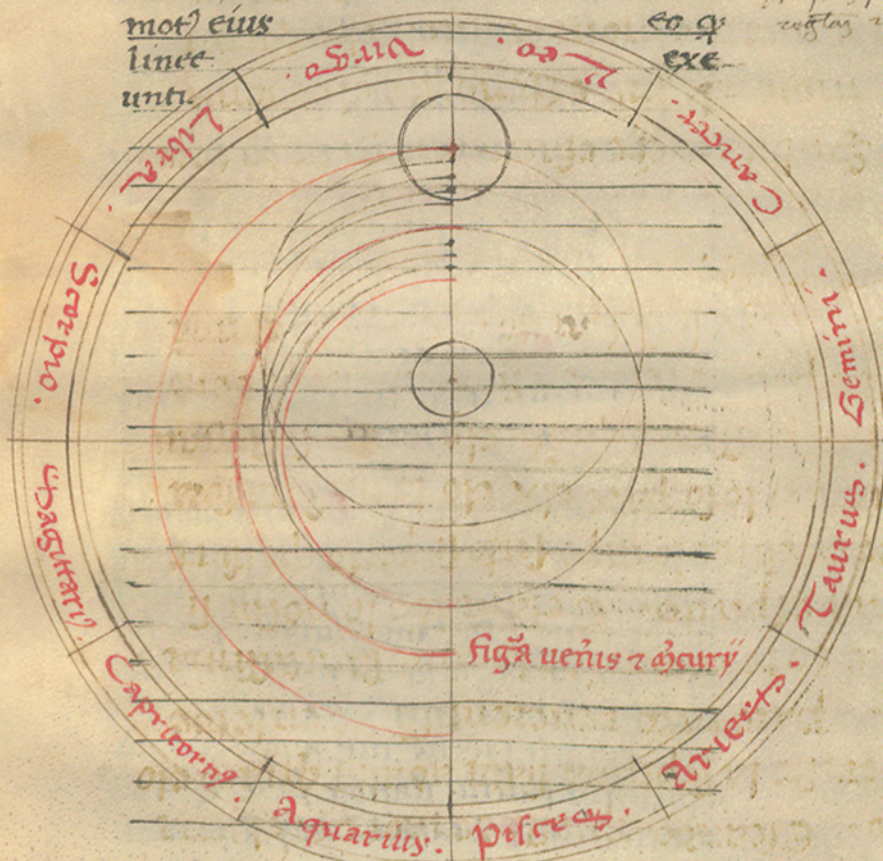 mot⁾ eius eo ꝙ
linee exe-
unti.
Virgo.
Leo.
Cancer.
Gemini.
Taurus.
Arietꝭ.
Pisces.
Aquarius.
Capricornꝰ.
Sagittarij.
Scorpio.
Libra.
figᷓa uen̄is ⁊ m̄curij